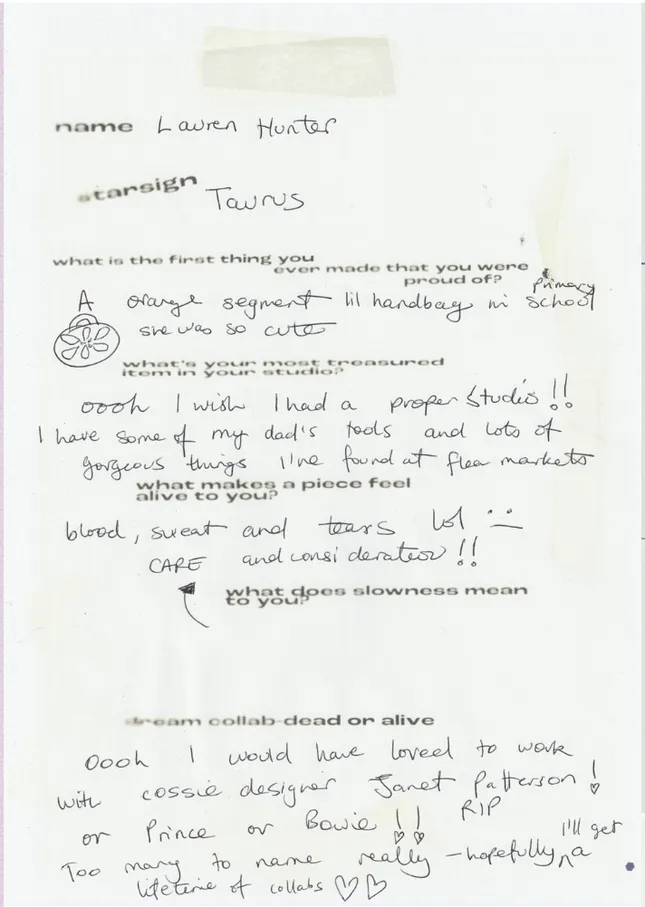 name Lauren Hunter
starsign Taurus
what is the first thing you
ever made that you were
proud of?
A orange segment lil handbag in primary school
she was so cute
what's your most treasured
item in your studio?
oooh I wish I had a proper studio!!
I have some of my dad's tools and lots of
gorgeous things I've found at flea markets
what makes a piece feel
alive to you?
blood, sweat and tears lol
CARE and consideration!!
what does slowness mean
to you?
dream collab dead or alive
oooh I would have loved to work
with cossie designer Janet Patterson!
RIP
or Prince or Bowie!!
Too many to name really - hopefully I'll get a
lifetime of collabs ♡♡